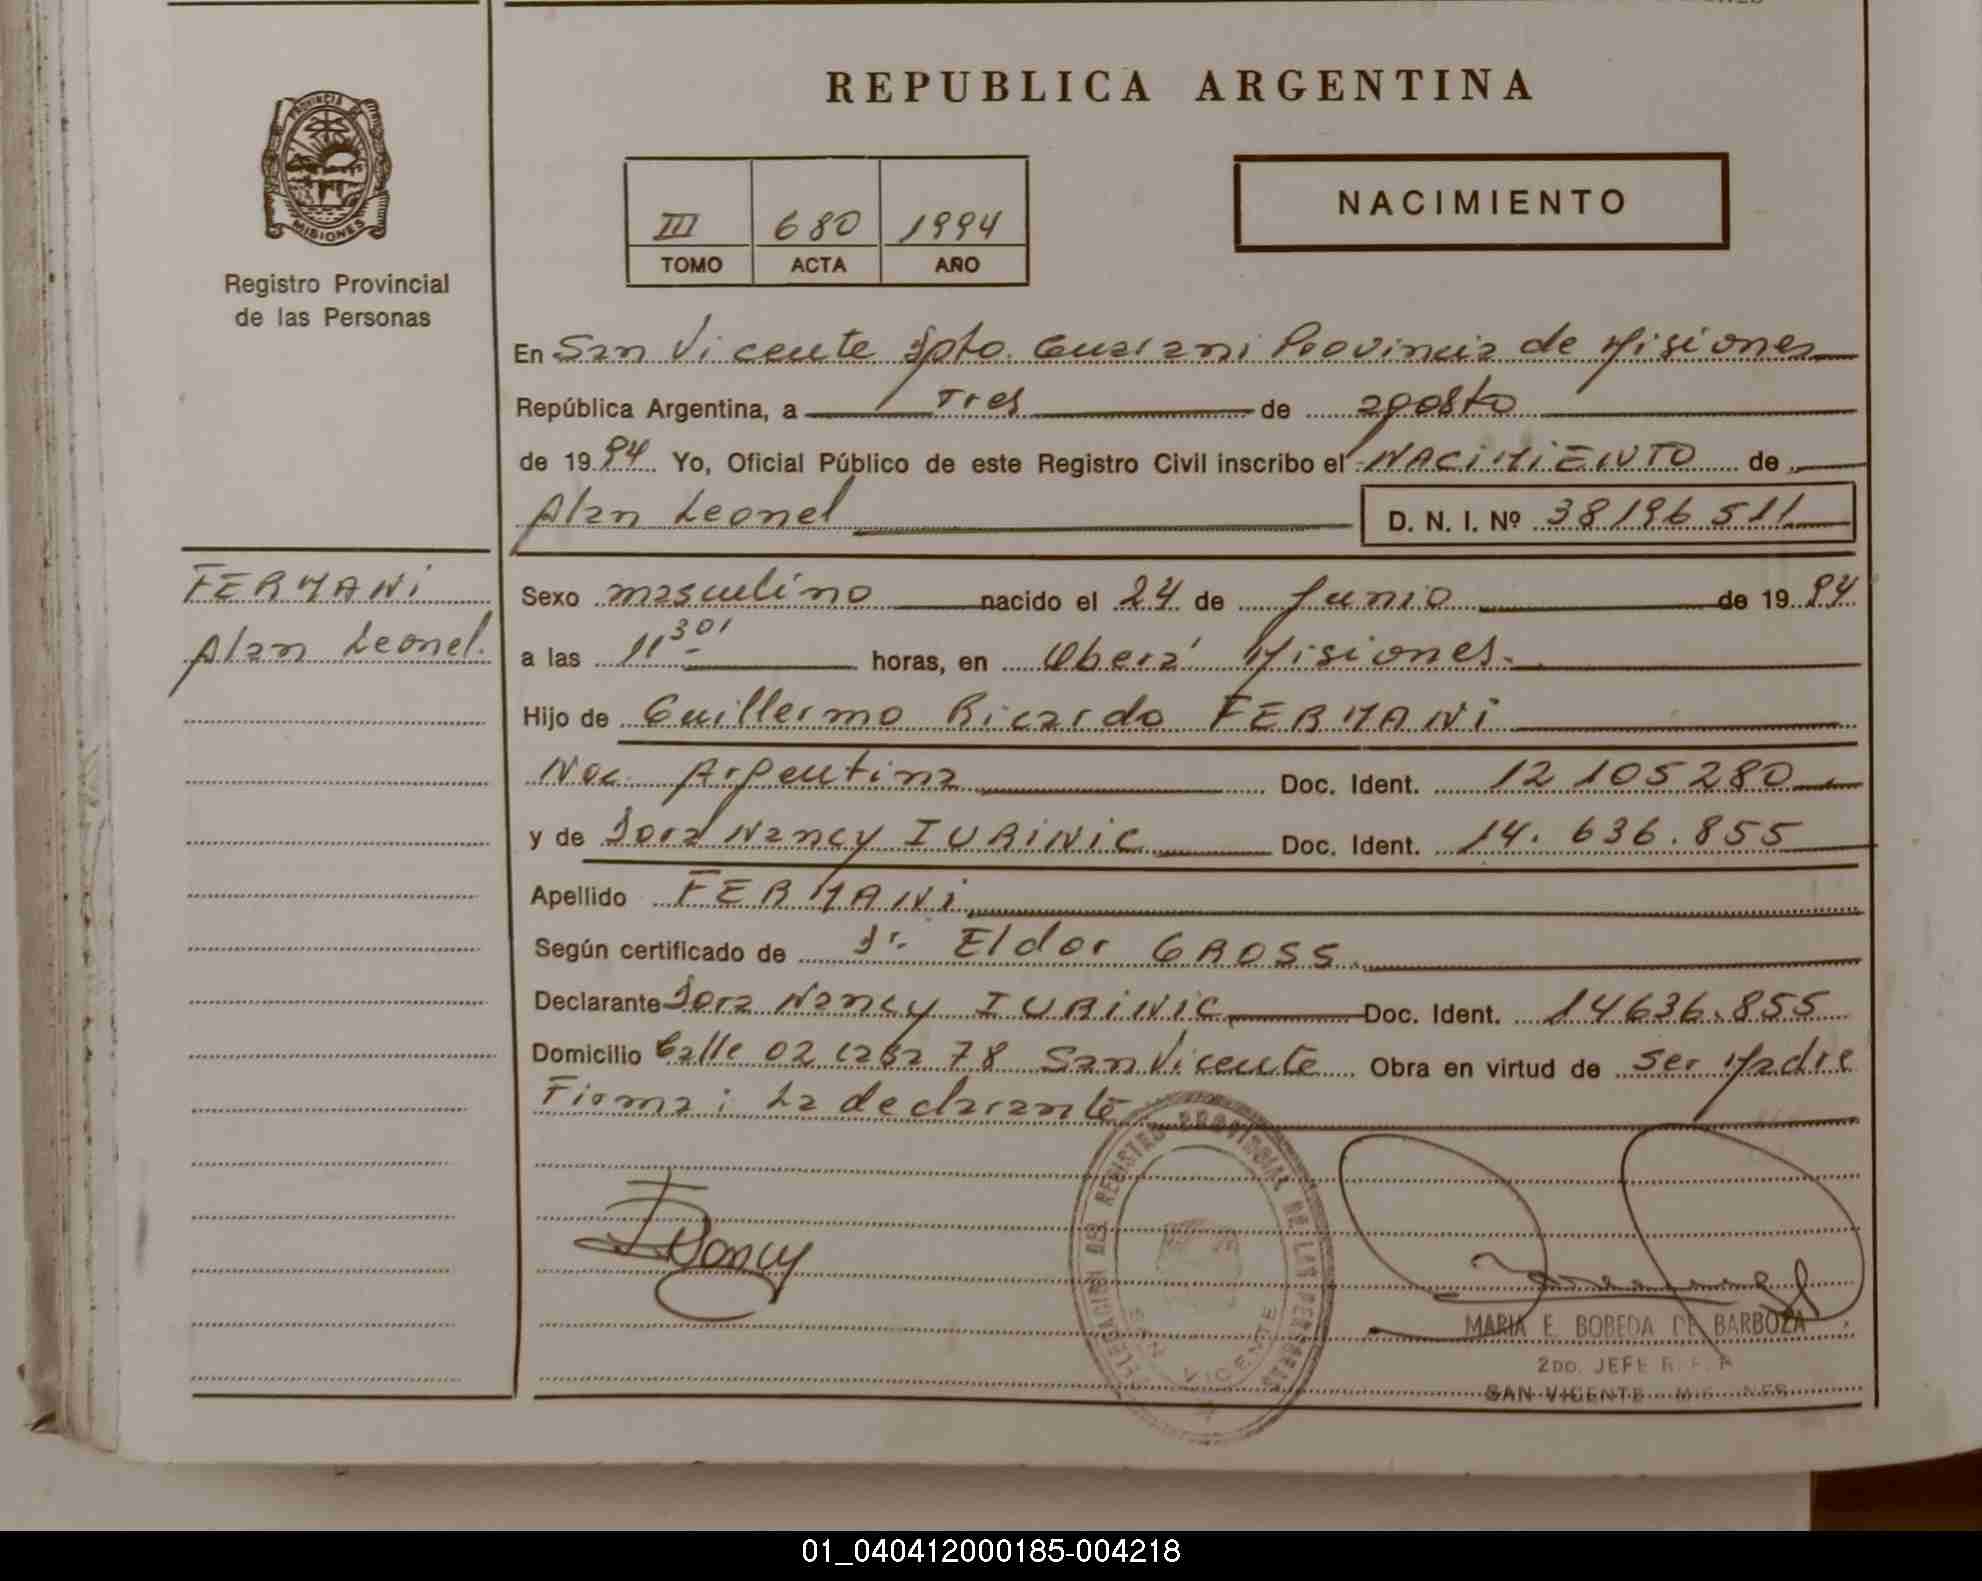 REPUBLICA ARGENTINA
PROVINCIA DE
MISIONES
Registro Provincial
de las Personas
III 680 1994
TOMO ACTA AÑO
NACIMIENTO
En San Vicente Dpto. Guarani Provincia de Misiones
República Argentina, a Tres de agosto
de 1994 Yo, Oficial Público de este Registro Civil inscribo el NACIMIENTO de
Alan Leonel D. N. I. Nº 38196511
FERMANi
Alan Leonel.
Sexo masculino nacido el 24 de Junio de 1994
a las 11 30' horas, en Oberá Misiones.
Hijo de Guillermo Ricardo FERMANi
Nac. Argentina Doc. Ident. 12 105280
y de Dora Nancy IURINIC Doc. Ident. 14. 636.855
Apellido FERMANi
Según certificado de Dr. Eldor GROSS.
Declarante Dora Nancy IURINIC Doc. Ident. 14636.855
Domicilio Calle 02 casa 78 San Vicente Obra en virtud de ser Madre
Firma: La declarante
DELEGACION DEL REGISTRO PROVINCIAL DE LAS PERSONAS
SAN VICENTE
MARIA E. BOBEDA DE BARBOZA
2DO. JEFE R. P. P.
SAN VICENTE
01_040412000185-004218